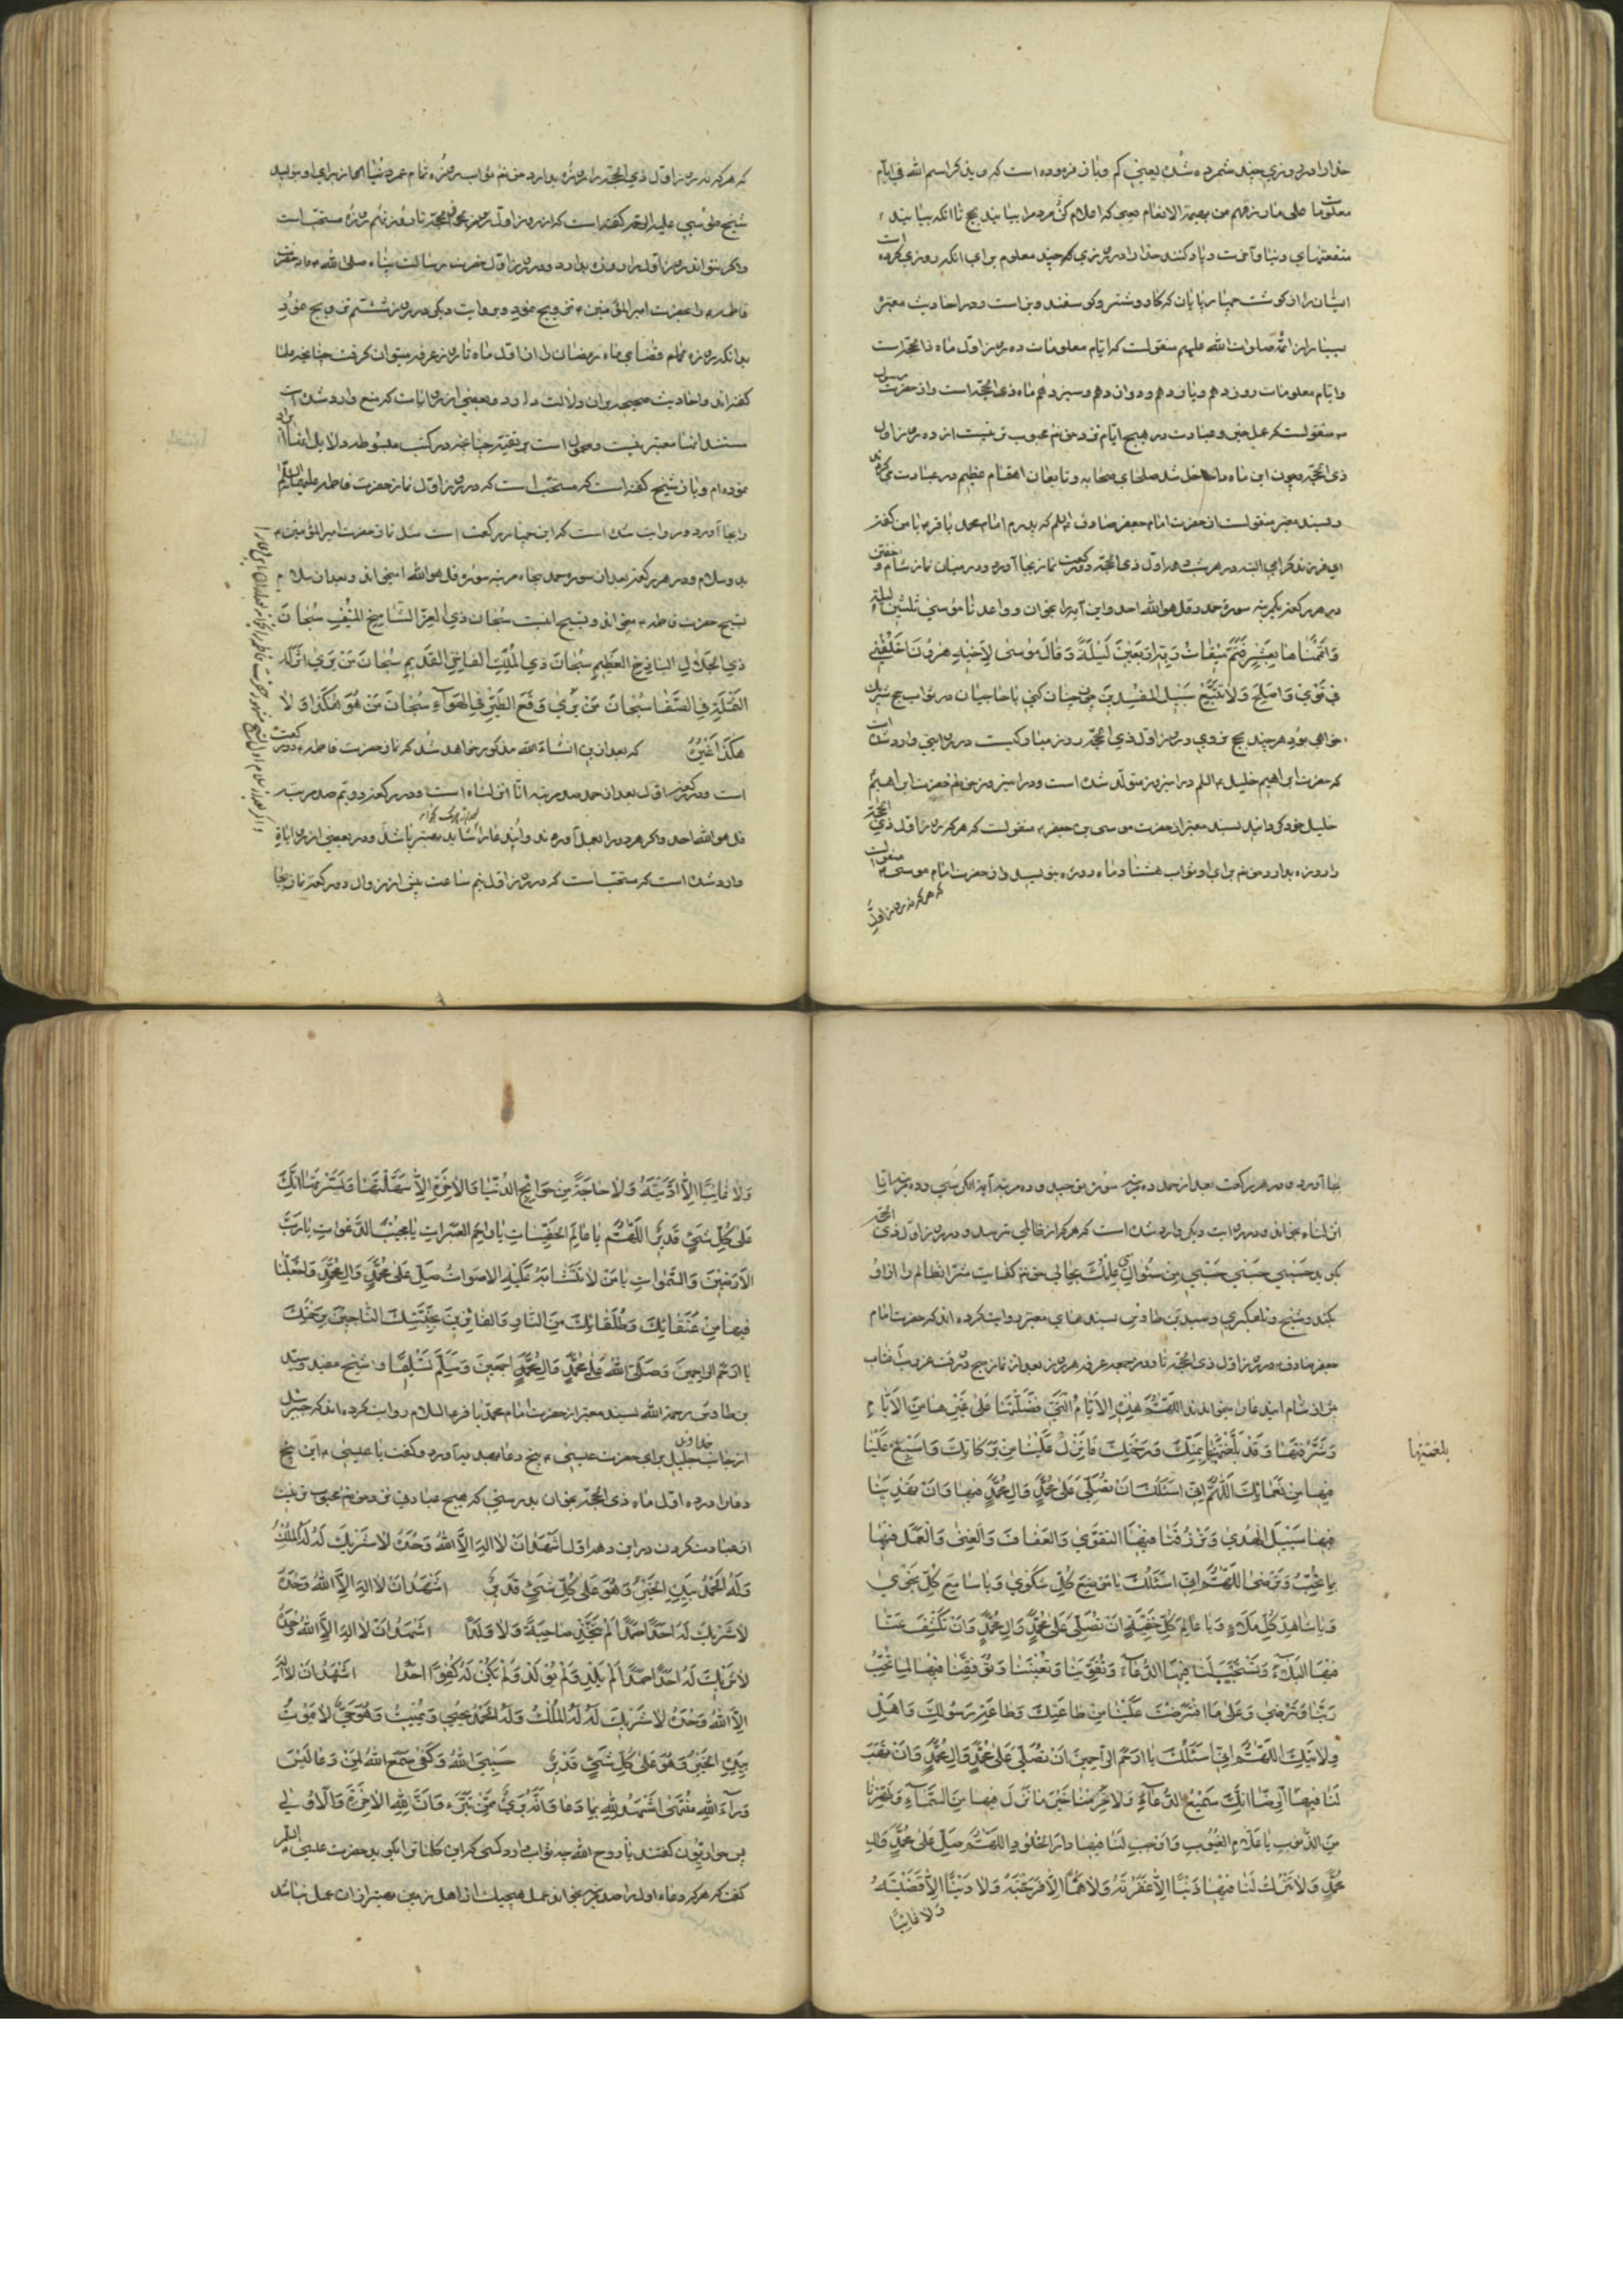 خدا را در روزی چند شمرده شده یعنی کم و باز فرموده است که ویذکر اسم الله فی ایام
معلومات علی ما رزقهم من بهیمة الانعام یعنی که اعلام کن مردم را بیایند بحج تا آنکه بیابند
منفعتهای دنیا و آخرت و یاد کنند خدا را در روزی چند معلوم برای آنکه روزی کرده است
ایشان را از گوشت چهارپایان که گاو و شتر و گوسفند و بز است و در احادیث معتبره
بسیار از ائمه صلوات الله علیهم منقولست که ایام معلومات ده روز اول ماه ذی الحجه است
وایام معلومات روز دهم و یازدهم و دوازدهم و سیزدهم ماه ذی الحجه است و از حضرت رسول
منقولست که عمل خیر و عبادت در هیچ ایام نزد حق تعم محبوب تر نیست از ده روز اول
ذی الحجه و چون این ماه داخل شد صلحای صحابه و تابعان اهتمام عظیم در عبادت میکردند
و بسند معتبر منقولست از حضرت امام جعفر صادق که پدرم امام محمد باقر با من گفت
ای فرزند ترک مکن البته در هر شب دهه اول ذی الحجه دو رکعت نماز بجا آوردن در میان نماز شام و خفتن
در هر رکعت یکمرتبه سوره حمد و قل هو الله احد و این آیه را بخوان و واعدنا موسی ثلثین لیلة
وَاَتْمَمْناها بِعَشْرٍ فَتَمَّ میقاتُ رَبِّهِ اَرْبَعینَ لَیْلَةً وَقالَ مُوسی لِاَخیهِ هرُونَ اخْلُفْنی
فی قَوْمی وَاَصْلِحْ وَلا تَتَّبِعْ سَبیلَ المُفْسِدینَ چون چنان کنی با حاجیان در ثواب حج شریک
خواهی بود هر چند بحج نروی و روز اول ذی الحجه روز مبارکیست در روایتی وارد شده است
که حضرت ابراهیم خلیل در این روز متولد شده است و در این روز حق تعم حضرت ابراهیم
خلیل خود گردانید بسند معتبر از حضرت موسی بن جعفر منقولست که هر که روز اول ذی الحجه
را روزه بدارد حق تعم برای او ثواب هشتاد ماه روزه بنویسد و از حضرت امام موسی منقولست
که هر که نه روز اول
که هر که نه روز اول ذی الحجه را روزه بدارد حق تعم ثواب روزه تمام عمر دنیا از برای او بنویسد
شیخ طوسی علیه الرحمه گفته است که از روز اول ذی الحجه تا روز نهم روزه مستحب است
و اگر نتواند روز اول را روزه بدارد و در روز اول حضرت رسالت پناه صلی الله حضرت
فاطمه را بحضرت امیر المؤمنین تزویج نمود و بروایت دیگر در روز ششم تزویج نمود
بدانکه روزه تمام قضای ماه رمضان را از اول ماه تا روز عرفه میتوان گرفت چنانچه علما
گفته اند و احادیث صحیحه بر آن دلالت دارد و بعضی از روایات که منع وارد شده است
سند آنها معتبر نیست و محمول است بر تقیه چنانچه در کتب مبسوطه دلایل آنها را بیان
نموده ام و باز شیخ گفته است که مستحب است که در روز اول نماز حضرت فاطمه علیها السلام
را بجا آورد و روایت شده است که این چهار رکعت است مثل نماز حضرت امیر المؤمنین
بدو سلام و در هر رکعت بعد از سوره حمد پنجاه مرتبه سوره قل هو الله احد بخواند و بعد از سلام
تسبیح حضرت فاطمه بخواند و تسبیح اینست سُبْحانَ ذِی الْعِزِّ الشّامِخِ الْمُنیفِ سُبْحانَ
ذِی الْجَلالِ الباذِخِ الْعَظیمِ سُبْحانَ ذِی الْمُلْکِ الْفاخِرِ الْقَدیمِ سُبْحانَ مَنْ یَری اَثَرَ
النَّمْلَةِ فِی الصَّفا سُبْحانَ مَنْ یَری وَقْعَ الطَّیْرِ فِی الْهَوآءِ سُبْحانَ مَنْ هُوَ هکَذا وَلا
هکَذا غَیْرُهُ که بعد از این انشاء الله مذکور خواهد شد که نماز حضرت فاطمه دو رکعت
است و در رکعت اول بعد از حمد صد مرتبه انا انزلناه است و در رکعت دویم صد مرتبه
قل هو الله احد و اگر هر دو را بعمل آورد شاید بهتر باشد و در بعضی از روایات
وارد شده است که مستحب است که در روز اول نیم ساعت پیش از زوال دو رکعت نماز بجا
بجا آورد و در هر رکعت بعد از حمد ده مرتبه سوره توحید و ده مرتبه آیة الکرسی و ده مرتبه انا
انزلناه بخواند و در روایت دیگر وارد شده است که هر که از ظالمی ترسد و در روز اول ذی الحجه
بگوید حَسْبی حَسْبی حَسْبی مِنْ سُؤالی عِلْمُکَ بِحالی حق تعم کفایت شر آن ظالم را از او
بکند و شیخ و سید بن طاوس بسندهای معتبر روایت کرده اند که حضرت امام
جعفر صادق در روز اول ذی الحجه تا روز عرفه هر روز بعد از نماز صبح و قت غروب آفتاب
پیش از شام این دعا میخواندند اَللّهُمَّ هذِهِ الْاَیّامُ الَّتی فَضَّلْتَها عَلی غَیْرِها مِنَ الْاَیّامِ
وَشَرَّفْتَها وَقَدْ بَلَّغْتَنیها بِمَنِّکَ وَرَحْمَتِکَ فَاَنْزِلْ عَلَیْنا مِنْ بَرَکاتِکَ وَاَسْبِغْ عَلَیْنا
بلغتنیها
فیها مِنْ نَعْمائِکَ اَللّهُمَّ اِنّی اَسْئَلُکَ اَنْ تُصَلِّیَ عَلی مُحَمَّدٍ وَالِ مُحَمَّدٍ فیها وَاَنْ تَهْدِیَنا
فیها سَبیلَ الْهُدی وَتَرْزُقَنا فیهَا التَّقْوی وَالْعَفافَ وَالْغِنی وَالْعَمَلَ فیها
بِما تُحِبُّ وَتَرْضی اَللّهُمَّ اِنّی اَسْئَلُکَ یا مَوْضِعَ کُلِّ شَکْوی وَیا سامِعَ کُلِّ نَجْوی
وَیا شاهِدَ کُلِّ مَلَاءٍ وَیا عالِمَ کُلِّ خَفِیَّةٍ اَنْ تُصَلِّیَ عَلی مُحَمَّدٍ وَالِ مُحَمَّدٍ وَاَنْ تَکْشِفَ عَنّا
فیهَا الْبَلآءَ وَتَسْتَجیبَ لَنا فیهَا الدُّعآءَ وَتُقَوِّیَنا وَتُعینَنا وَتُوَفِّقَنا فیها لِما تُحِبُّ
رَبَّنا وَتَرْضی وَعَلی مَا افْتَرَضْتَ عَلَیْنا مِنْ طاعَتِکَ وَطاعَةِ رَسُولِکَ وَاَهْلِ
وِلایَتِکَ اَللّهُمَّ اِنّی اَسْئَلُکَ یا اَرْحَمَ الرّاحِمینَ اَنْ تُصَلِّیَ عَلی مُحَمَّدٍ وَالِ مُحَمَّدٍ وَاَنْ تَهَبَ
لَنا فیهَا الرِّضا اِنَّکَ سَمیعُ الدُّعآءِ وَلا تَحْرِمْنا خَیْرَ ما تُنْزِلُ فیها مِنَ السَّمآءِ وَطَهِّرْنا
مِنَ الذُّنُوبِ یا عَلّامَ الْغُیُوبِ وَاَوْجِبْ لَنا فیها دارَ الْخُلُودِ اَللّهُمَّ صَلِّ عَلی مُحَمَّدٍ وَالِ
مُحَمَّدٍ وَلا تَتْرُکْ لَنا فیها ذَنْباً اِلّا غَفَرْتَهُ وَلا هَمّاً اِلّا فَرَّجْتَهُ وَلا دَیْناً اِلّا قَضَیْتَهُ
وَلا غائِباً
وَلا غائِباً اِلّا اَدَّیْتَهُ وَلا حاجَةً مِنْ حَوائِجِ الدُّنْیا وَالْاخِرَةِ اِلّا سَهَّلْتَها وَیَسَّرْتَها اِنَّکَ
عَلی کُلِّ شَیْءٍ قَدیرٌ اَللّهُمَّ یا عالِمَ الْخَفِیّاتِ یا راحِمَ الْعَبَراتِ یا مُجیبَ الدَّعَواتِ یا رَبَّ
الْاَرَضینَ وَالسَّمواتِ یا مَنْ لا تَتَشابَهُ عَلَیْهِ الْاَصْواتُ صَلِّ عَلی مُحَمَّدٍ وَالِ مُحَمَّدٍ وَاجْعَلْنا
فیها مِنْ عُتَقائِکَ وَطُلَقائِکَ مِنَ النّارِ وَالْفائِزینَ بِجَنَّتِکَ النّاجینَ بِرَحْمَتِکَ
یا اَرْحَمَ الرّاحِمینَ وَصَلَّی اللهُ عَلی مُحَمَّدٍ وَالِ مُحَمَّدٍ اَجْمَعینَ وَسَلَّمَ تَسْلیماً و شیخ مفید و سید
بن طاوس رحمة الله بسند معتبر از حضرت امام محمد باقر علیه السلام روایت کرده اند که جبرئیل
از جانب خداوند جلیل برای حضرت عیسی پنج دعا بهدیه آورد و گفت یا عیسی این پنج
دعا را در ده اول ماه ذی الحجه بخوان بدرستی که هیچ عبادتی نزد حق تعم محبوب تر نیست
از عبادت کردن در این دهه اول اَشْهَدُ اَنْ لا اِلهَ اِلَّا اللهُ وَحْدَهُ لا شَریکَ لَهُ لَهُ الْمُلْکُ
وَلَهُ الْحَمْدُ بِیَدِهِ الْخَیْرُ وَهُوَ عَلی کُلِّ شَیْءٍ قَدیرٌ اَشْهَدُ اَنْ لا اِلهَ اِلَّا اللهُ وَحْدَهُ
لا شَریکَ لَهُ اَحَداً صَمَداً لَمْ یَتَّخِذْ صاحِبَةً وَلا وَلَداً اَشْهَدُ اَنْ لا اِلهَ اِلَّا اللهُ وَحْدَهُ
لا شَریکَ لَهُ اَحَداً صَمَداً لَمْ یَلِدْ وَلَمْ یُولَدْ وَلَمْ یَکُنْ لَهُ کُفُواً اَحَدٌ اَشْهَدُ اَنْ لا اِلهَ
اِلَّا اللهُ وَحْدَهُ لا شَریکَ لَهُ لَهُ الْمُلْکُ وَلَهُ الْحَمْدُ یُحْیی وَیُمیتُ وَهُوَ حَیٌّ لا یَمُوتُ
بِیَدِهِ الْخَیْرُ وَهُوَ عَلی کُلِّ شَیْءٍ قَدیرٌ حَسْبِیَ اللهُ وَکَفی سَمِعَ اللهُ لِمَنْ دَعا لَیْسَ
وَرآءَ اللهِ مُنْتَهی اَشْهَدُ لِلّهِ بِما دَعا وَاَنَّهُ بَریءٌ مِمَّنْ تَبَرَّءَ وَاَنَّ لِلّهِ الْاخِرَةَ وَالْاُولی
پس حواریون گفتند یا روح الله چه ثواب دارد کسی که این کلمات را بگوید حضرت عیسی
گفت که هر که دعاء اول را صد مرتبه بخواند عمل هیچیک از اهل زمین بهتر از آن عمل نباشد